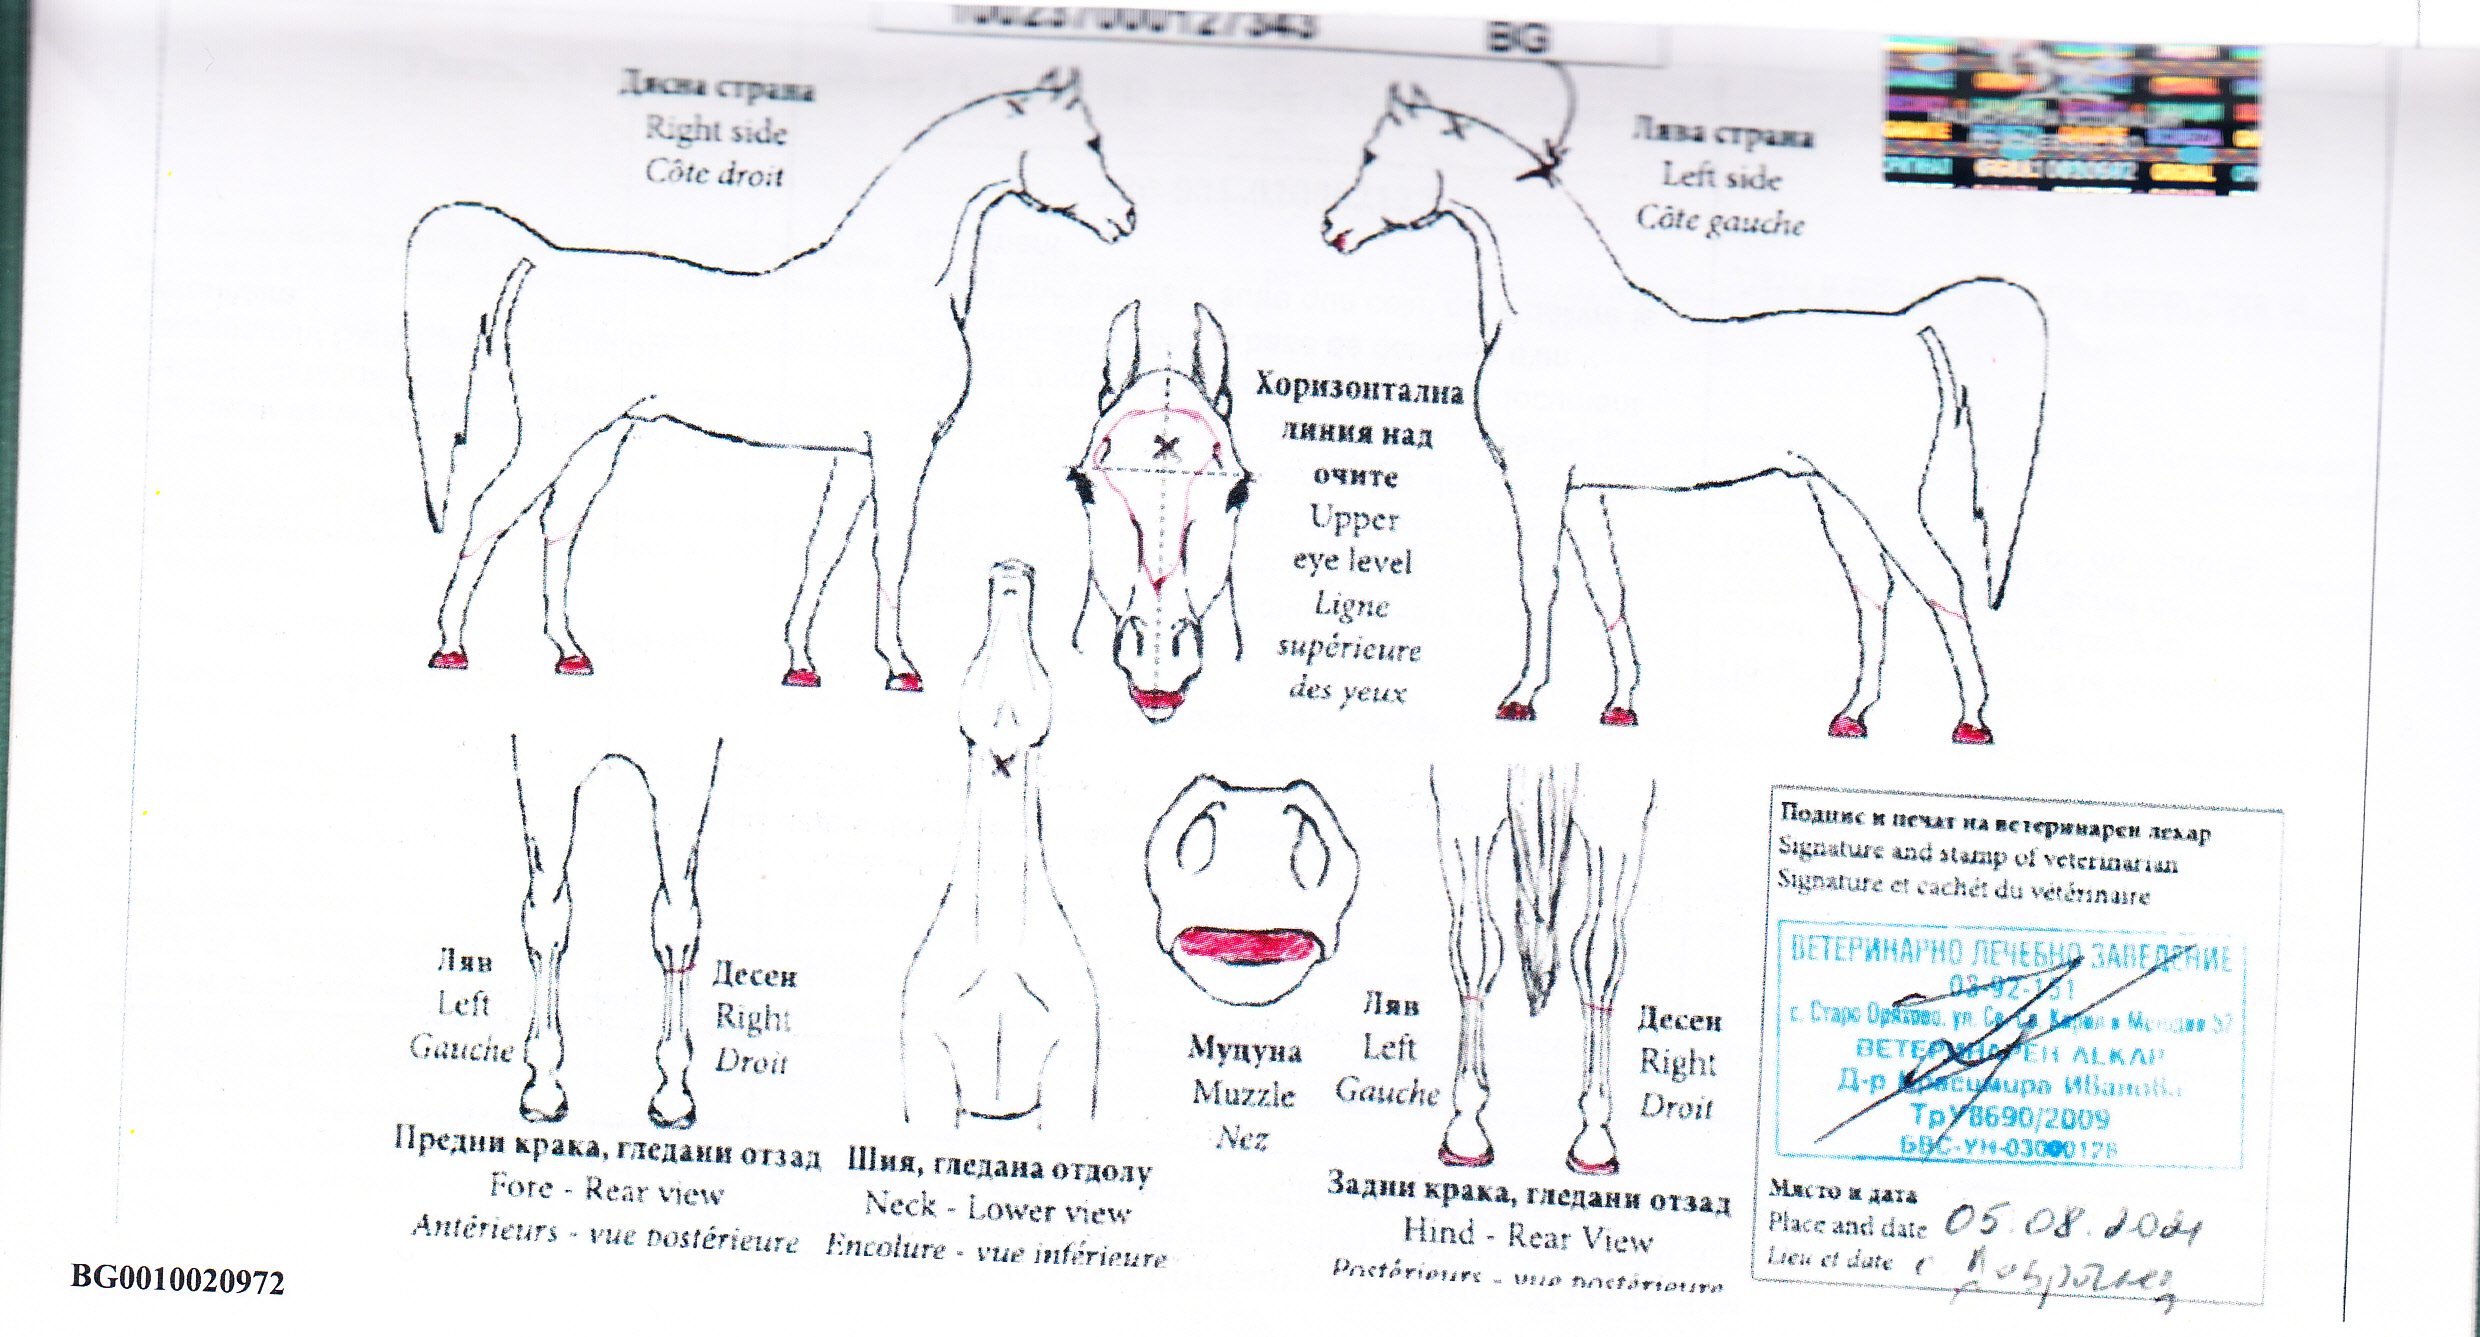 100257000127343 BG
Дясна страна
Right side
Côte droit
Лява страна
Left side
Côte gauche
Хоризонтална
линия над
очите
Upper
eye level
Ligne
supérieure
des yeux
Ляв
Left
Gauche
Десен
Right
Droit
Предни крака, гледани отзад
Fore - Rear view
Antérieurs - vue postérieure
Шия, гледана отдолу
Neck - Lower view
Encolure - vue inférieure
Муцуна
Muzzle
Nez
Ляв
Left
Gauche
Десен
Right
Droit
Задни крака, гледани отзад
Hind - Rear View
Postérieurs - vue postérieure
Подпис и печат на ветеринарен лекар
Signature and stamp of veterinarian
Signature et cachét du vétérinaire
ВЕТЕРИНАРНО ЛЕЧЕБНО ЗАВЕДЕНИЕ
03-92-131
с. Старо Оряхово, ул. Св. Св. Кирил и Методий 57
ВЕТЕРИНАРЕН ЛЕКАР
Д-р Красимира Иванова
ТрУ8690/2009
БВС-УН-03000128
Място и дата
Place and date 05.08.2021
Lieu et date
BG0010020972